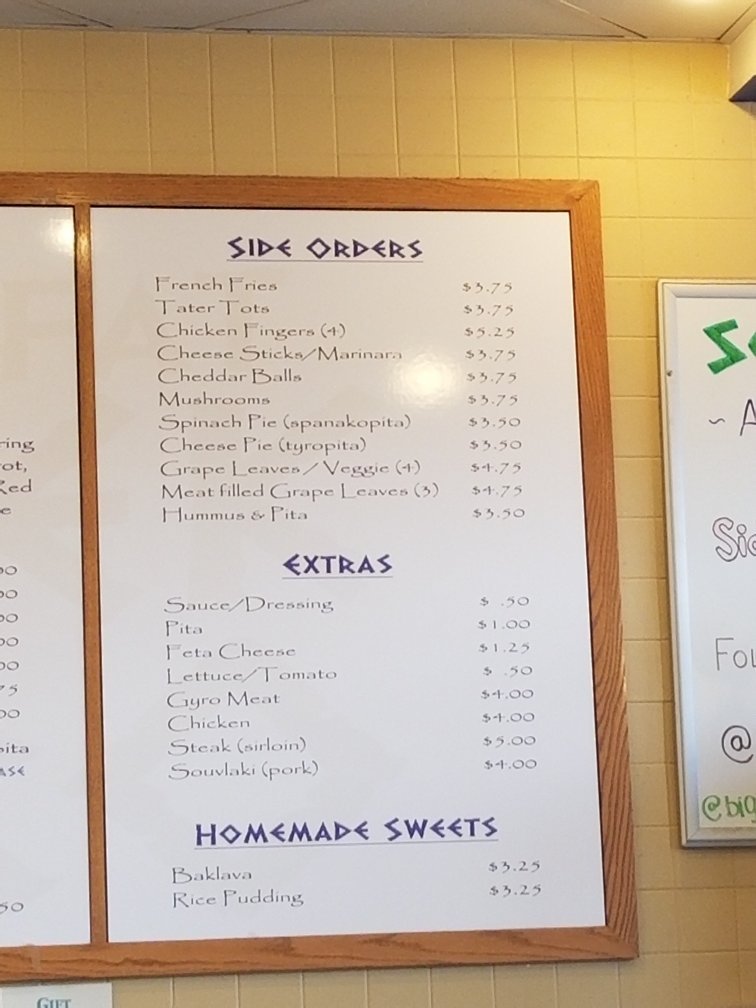 SIDE ORDERS
French Fries $3.75
Tater Tots $3.75
Chicken Fingers (4) $5.25
Cheese Sticks/Marinara $3.75
Cheddar Balls $3.75
Mushrooms $3.75
Spinach Pie (spanakopita) $3.50
Cheese Pie (tyropita) $3.50
Grape Leaves/Veggie (4) $4.75
Meat filled Grape Leaves (3) $4.75
Hummus & Pita $3.50
EXTRAS
Sauce/Dressing $ .50
Pita $1.00
Feta Cheese $1.25
Lettuce/Tomato $ .50
Gyro Meat $4.00
Chicken $4.00
Steak (sirloin) $5.00
Souvlaki (pork) $4.00
HOMEMADE SWEETS
Baklava $3.25
Rice Pudding $3.25
GIFT
@big